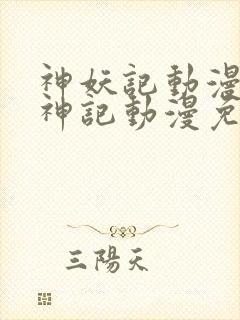 神妖記動漫
神記動漫免
三陽天